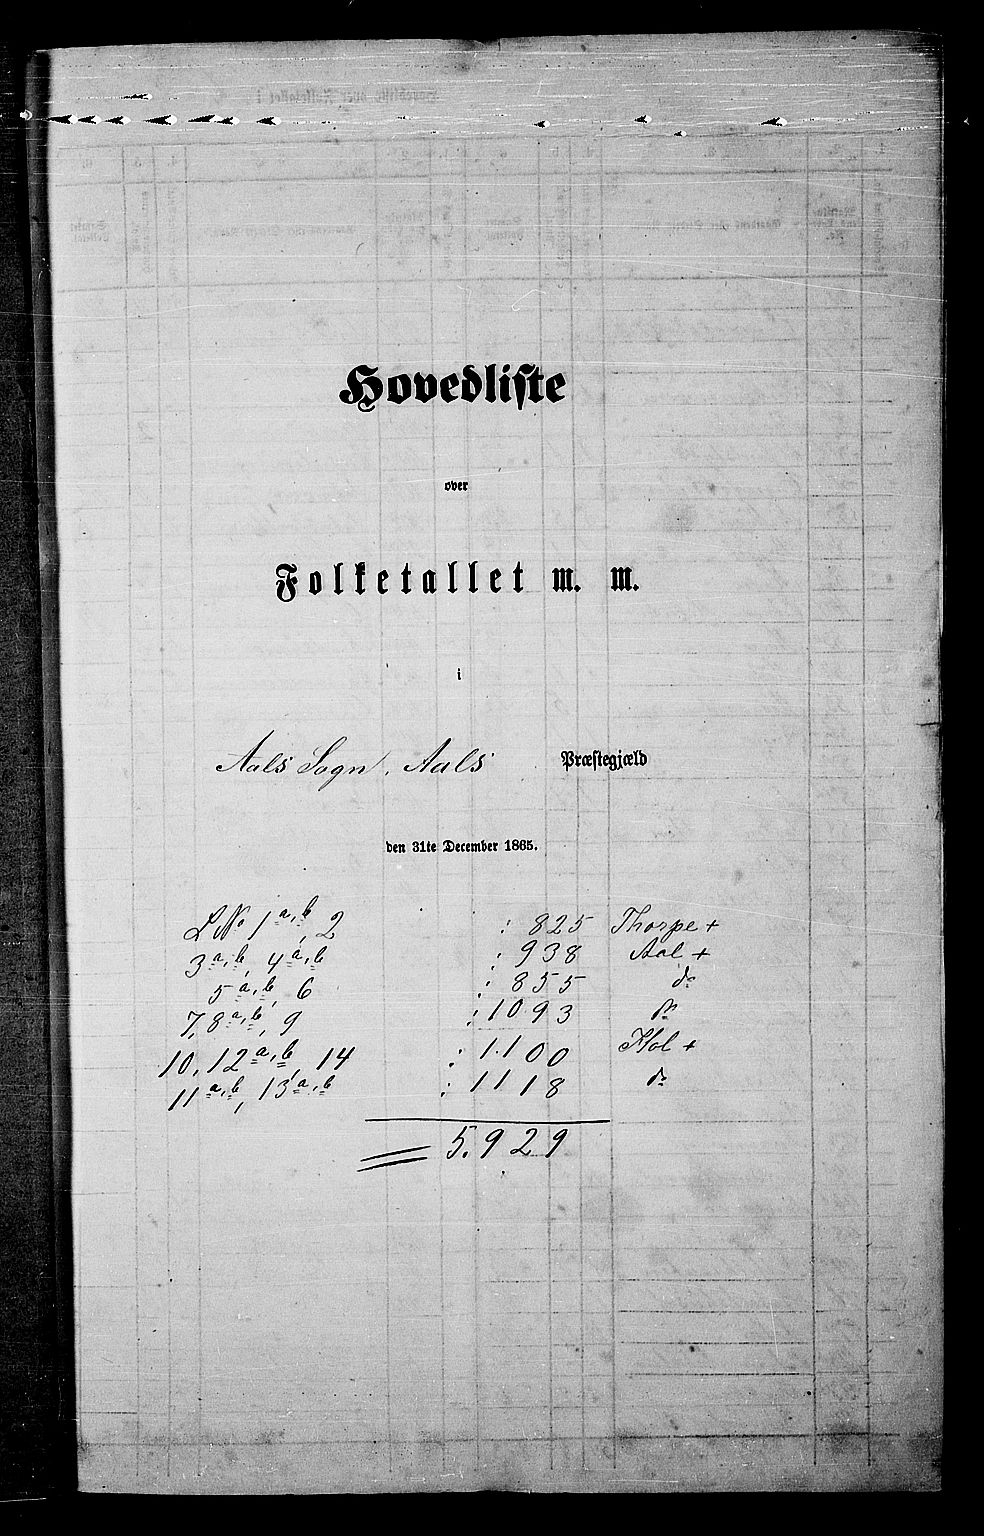 Hovedliste
over
Folketallet m. m.
i
Aals Sogn, Aals Præstegjæld
den 31te December 1865.
L No 1 a, b, 2 : 825 Thorpe +
3 a, b, 4 a, b : 938 Aal +
5 a, b, 6 : 855 do
7, 8 a, b, 9 : 1093 do
10, 12 a, b, 14 : 1.100 Hol +
11 a, b, 13 a, b : 1118 do
5.929